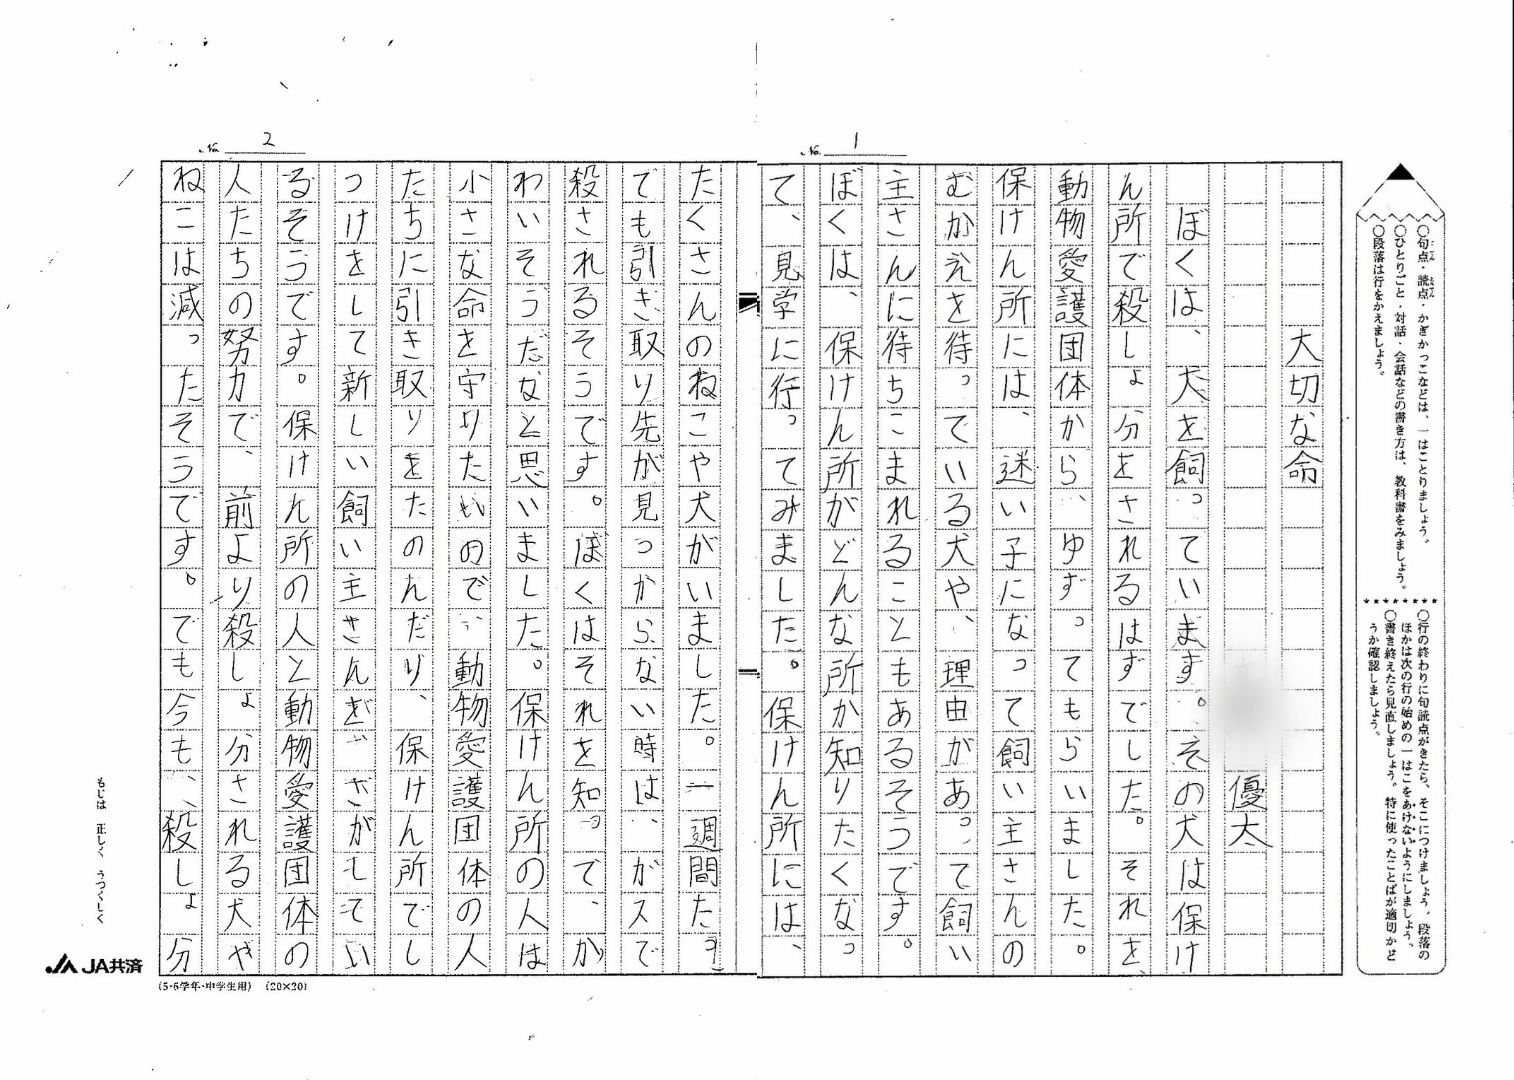 ○句点・読点・かぎかっこなどは、一はことりましょう。
○ひとりごと・対話・会話などの書き方は、教科書をみましょう。
○段落は行をかえましょう。
○行の終わりに句読点がきたら、そこにつけましょう。段落の
ほかは次の行の始めの一はこをあけないようにしましょう。
○書き終えたら見直しましょう。特に使ったことばが適切かど
うか確認しましょう。
No. 1
大切な命
優太
ぼくは、犬を飼っています。その犬は保け
ん所で殺しょ分をされるはずでした。それを、
動物愛護団体から、ゆずってもらいました。
保けん所には、迷い子になって飼い主さんの
むかえを待っている犬や、理由があって飼い
主さんに待ちこまれることもあるそうです。
ぼくは、保けん所がどんな所か知りたくなっ
て、見学に行ってみました。保けん所には、
No. 2
たくさんのねこや犬がいました。一週間たっ
ても引き取り先が見つからない時は、ガスで
殺されるそうです。ぼくはそれを知って、か
わいそうだなと思いました。保けん所の人は
小さな命を守りたいので、動物愛護団体の人
たちに引き取りをたのんだり、保けん所でし
つけをして新しい飼い主さんをさがしてい
るそうです。保けん所の人と動物愛護団体の
人たちの努力で、前より殺しょ分される犬や
ねこは減ったそうです。でも今も、殺しょ分
もじは 正しく うつくしく
JA共済
(5・6学年・中学生用) (20×20)